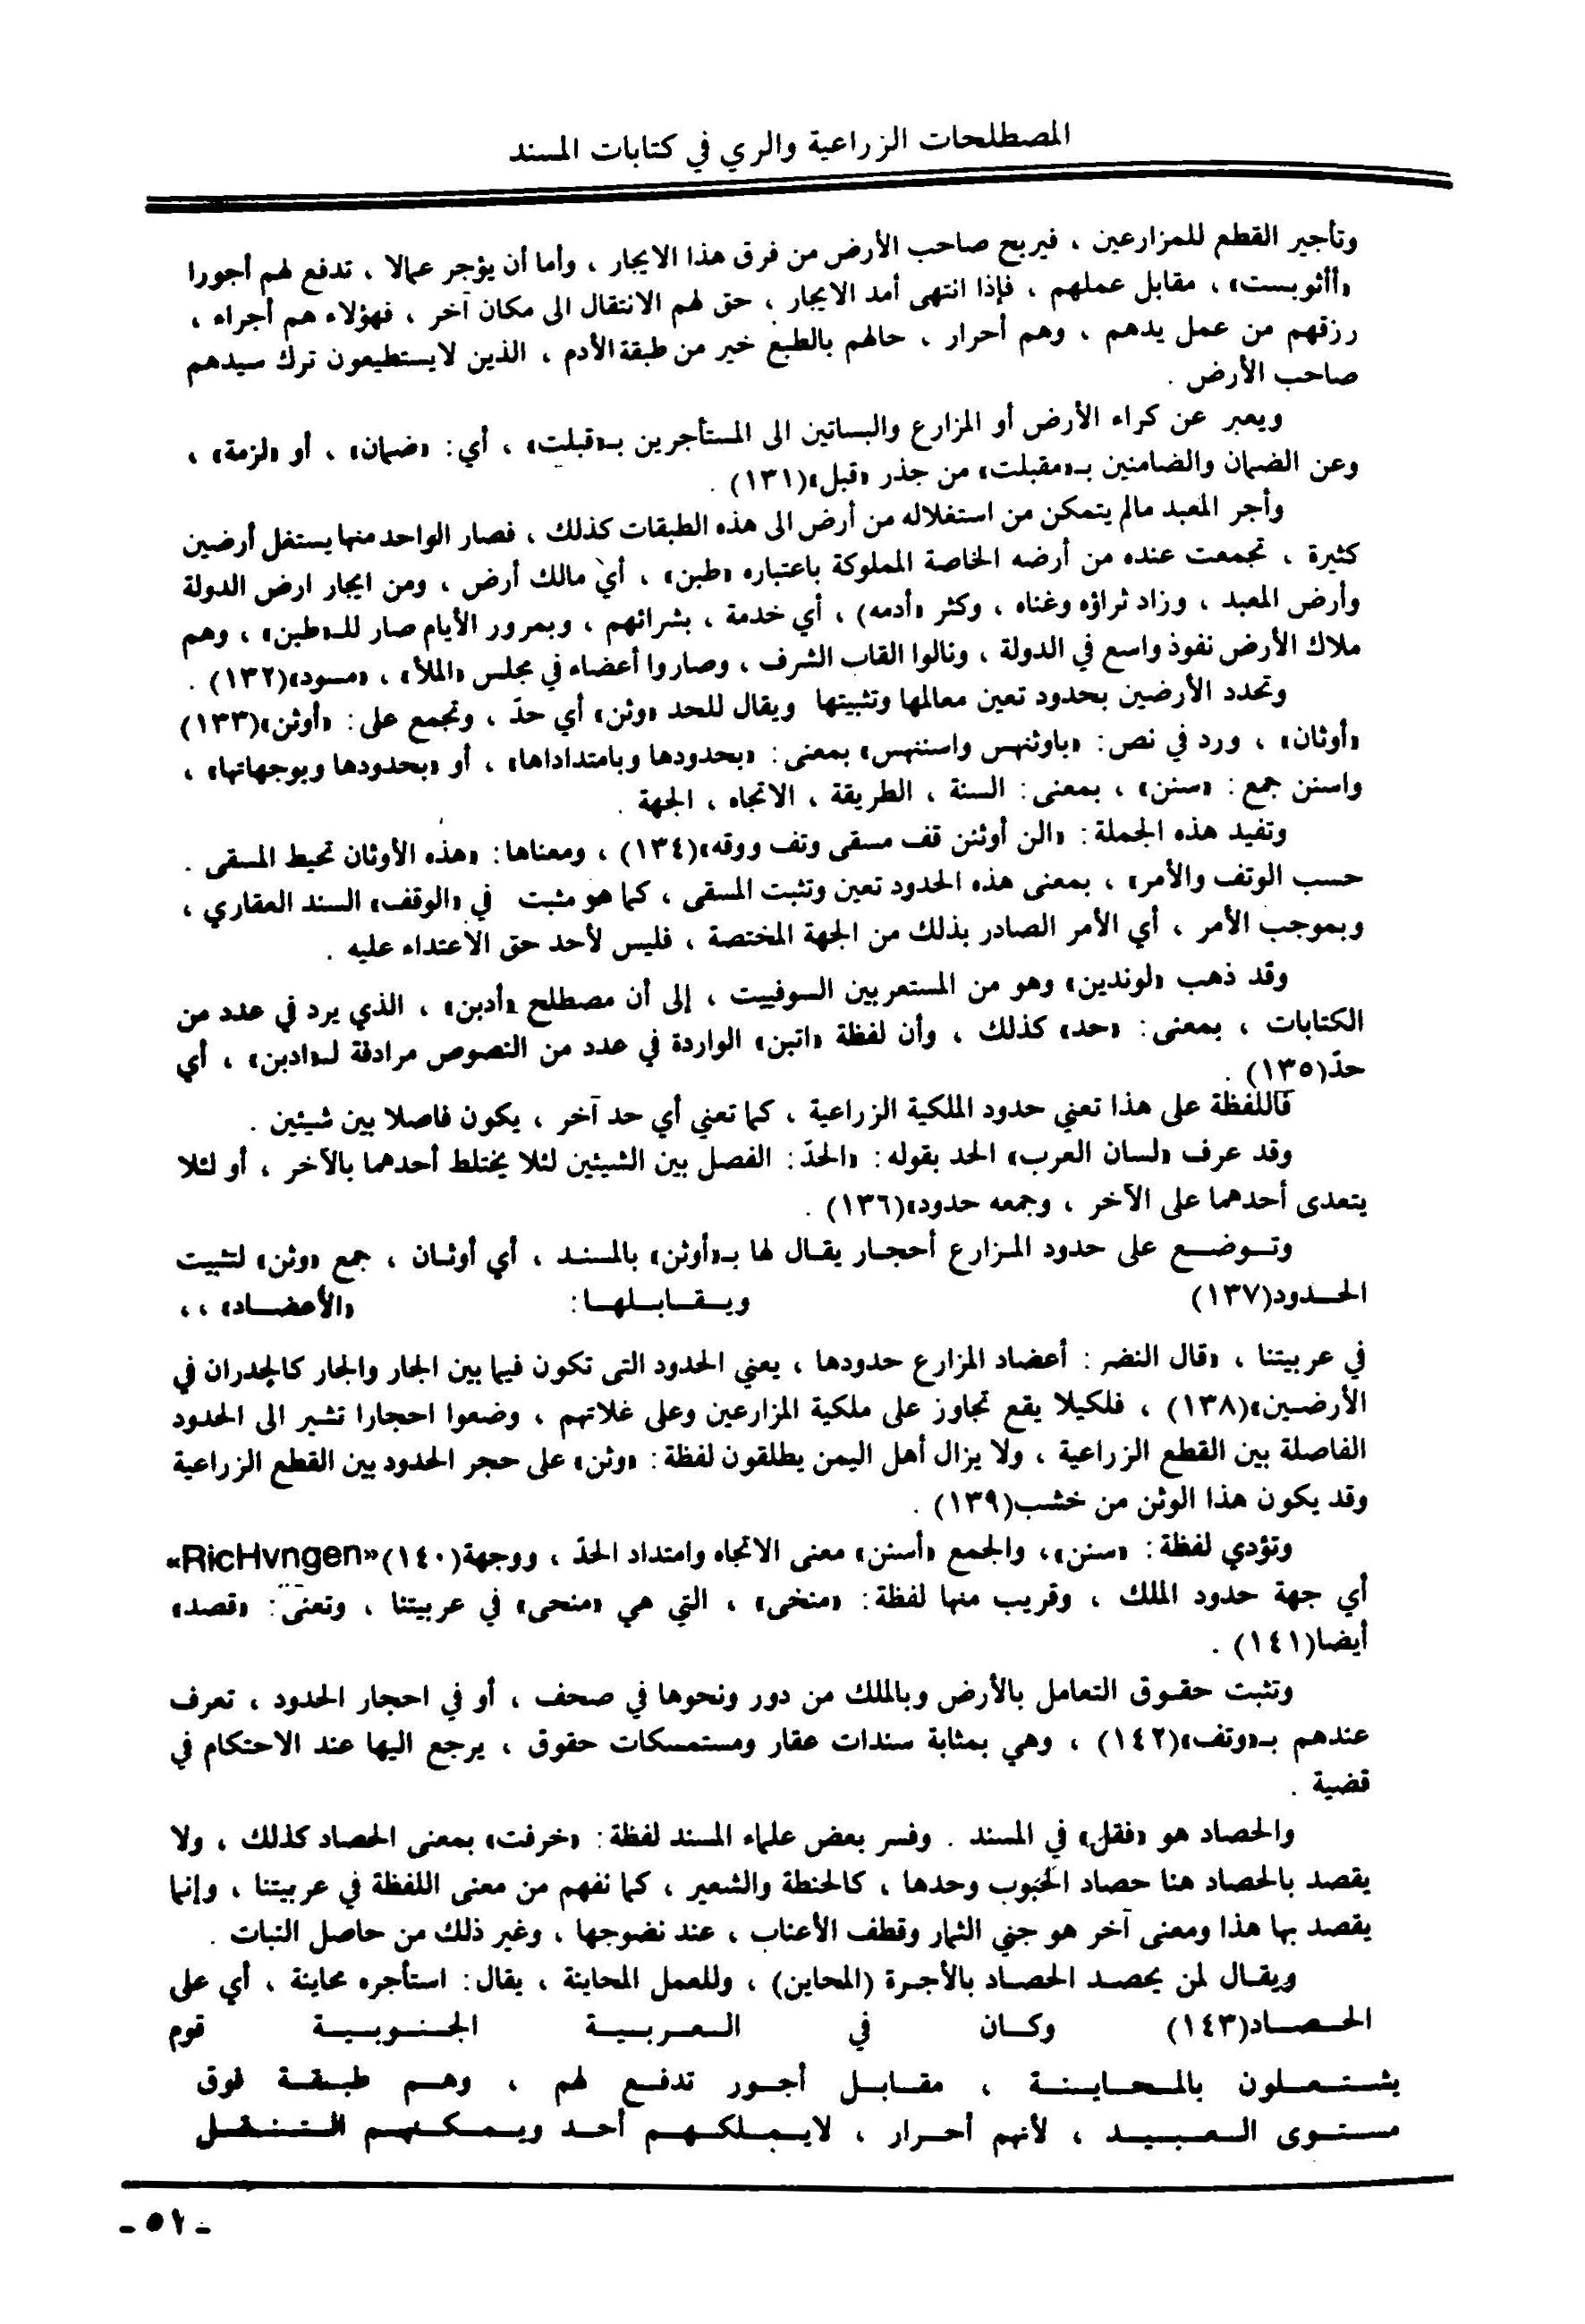 المصطلحات الزراعية والري في كتابات المسند
وتأجير القطع للمزارعين ، فيربح صاحب الأرض من فرق هذا الايجار ، وأما أن يؤجر عمالا ، تدفع لهم أجورا
«أأثوبست» ، مقابل عملهم ، فإذا انتهى أمد الايجار ، حق لهم الانتقال الى مكان آخر ، فهؤلاء هم أجراء ،
رزقهم من عمل يدهم ، وهم أحرار ، حالهم بالطبع خير من طبقة الأدم ، الذين لايستطيعون ترك سيدهم
صاحب الأرض .
ويعبر عن كراء الأرض أو المزارع والبساتين الى المستأجرين بـ«قبلت» ، أي: «ضمان» ، أو «لزمة» ،
وعن الضمان والضامنين بـ«مقبلت» من جذر «قبل»(١٣١) .
وأجر المعبد مالم يتمكن من استغلاله من أرض الى هذه الطبقات كذلك ، فصار الواحد منها يستغل أرضين
كثيرة ، تجمعت عنده من أرضه الخاصة المملوكة باعتباره «طبن» ، أي مالك أرض ، ومن ايجار ارض الدولة
وأرض المعبد ، وزاد ثراؤه وغناه ، وكثر «أدمه) ، أي خدمة ، بشرائهم ، وبمرور الأيام صار للـ«طبن» ، وهم
ملاك الأرض نفوذ واسع في الدولة ، ونالوا القاب الشرف ، وصاروا أعضاء في مجلس «الملأ» ، «مسود»(١٣٢) .
وتحدد الأرضين بحدود تعين معالمها وتثبيتها ويقال للحد «وثن» أي حدّ ، وتجمع على: «أوثن»(١٣٣)
«أوثان» ، ورد في نص: «باوثنهس واسننهس» بمعنى: «بحدودها وبامتداداها» ، أو «بحدودها وبوجهاتها» ،
واسنن جمع: «سنن» ، بمعنى: السنة ، الطريقة ، الاتجاه ، الجهة .
وتفيد هذه الجملة: «الن أوثنن قف مسقى وتف ووقه»(١٣٤) ، ومعناها: «هذه الأوثان تحيط المسقى .
حسب الوتف والأمر» ، بمعنى هذه الحدود تعين وتثبت المسقى ، كما هو مثبت في «الوقف» السند العقاري ،
وبموجب الأمر ، أي الأمر الصادر بذلك من الجهة المختصة ، فليس لأحد حق الاعتداء عليه .
وقد ذهب «لوندين» وهو من المستعربين السوفييت ، إلى أن مصطلح «أدبن» ، الذي يرد في عدد من
الكتابات ، بمعنى: «حد» كذلك ، وأن لفظة «اتبن» الواردة في عدد من النصوص مرادفة لـ«ادبن» ، أي
حدّ(١٣٥) .
فاللفظة على هذا تعني حدود الملكية الزراعية ، كما تعني أي حد آخر ، يكون فاصلا بين شيئين .
وقد عرف «لسان العرب» الحد بقوله: «الحدّ: الفصل بين الشيئين لئلا يختلط أحدهما بالآخر ، أو لئلا
يتعدى أحدهما على الآخر ، وجمعه حدود»(١٣٦) .
وتـوضـع على حدود المزارع أحجار يقال لها بـ«أوثن» بالمسند ، أي أوثان ، جمع «وثن» لتثبيت
الحـدود(١٣٧) ويـقـابـلهـا: «الأعضـاد» ، ،
في عربيتنا ، «قال النضر: أعضاد المزارع حدودها ، يعني الحدود التى تكون فيما بين الجار والجار كالجدران في
الأرضين»(١٣٨) ، فلكيلا يقع تجاوز على ملكية المزارعين وعلى غلاتهم ، وضعوا احجارا تشير الى الحدود
الفاصلة بين القطع الزراعية ، ولا يزال أهل اليمن يطلقون لفظة: «وثن» على حجر الحدود بين القطع الزراعية
وقد يكون هذا الوثن من خشب(١٣٩) .
وتؤدي لفظة: «سنن»، والجمع «أسنن» معنى الاتجاه وامتداد الحدّ ، ووجهة(١٤٠)«RicHvngen»
أي جهة حدود الملك ، وقريب منها لفظة: «منخى» ، التي هي «منحى» في عربيتنا ، وتعنى: «قصد»
أيضا(١٤١) .
وتثبت حقوق التعامل بالأرض وبالملك من دور ونحوها في صحف ، أو في احجار الحدود ، تعرف
عندهم بـ«وتف»(١٤٢) ، وهي بمثابة سندات عقار ومستمسكات حقوق ، يرجع اليها عند الاحتكام في
قضية .
والحصاد هو «فقل» في المسند . وفسر بعض علماء المسند لفظة: «خرفت» بمعنى الحصاد كذلك ، ولا
يقصد بالحصاد هنا حصاد الحبوب وحدها ، كالحنطة والشعير ، كما نفهم من معنى اللفظة في عربيتنا ، وإنما
يقصد بها هذا ومعنى آخر هو جني الثمار وقطف الأعناب ، عند نضوجها ، وغير ذلك من حاصل النبات .
ويقـال لمن يحصـد الحصـاد بالأجـرة (المحاين) ، وللعمل المحاينة ، يقال: استأجره محاينة ، أي على
الحـصـاد(١٤٣) وكـان في الـعـربـيـة الجـنـوبـيـة قوم
يشـتـعـلون بالـمـحـايـنـة ، مقـابـل أجـور تدفـع لهم ، وهـم طبـقـة فوق
مستـوى الـعـبـيـد ، لأنهم أحـرار ، لايـمـلكـهـم أحـد ويـمـكـنهـم الـتـنـقـل
- ٥١ -